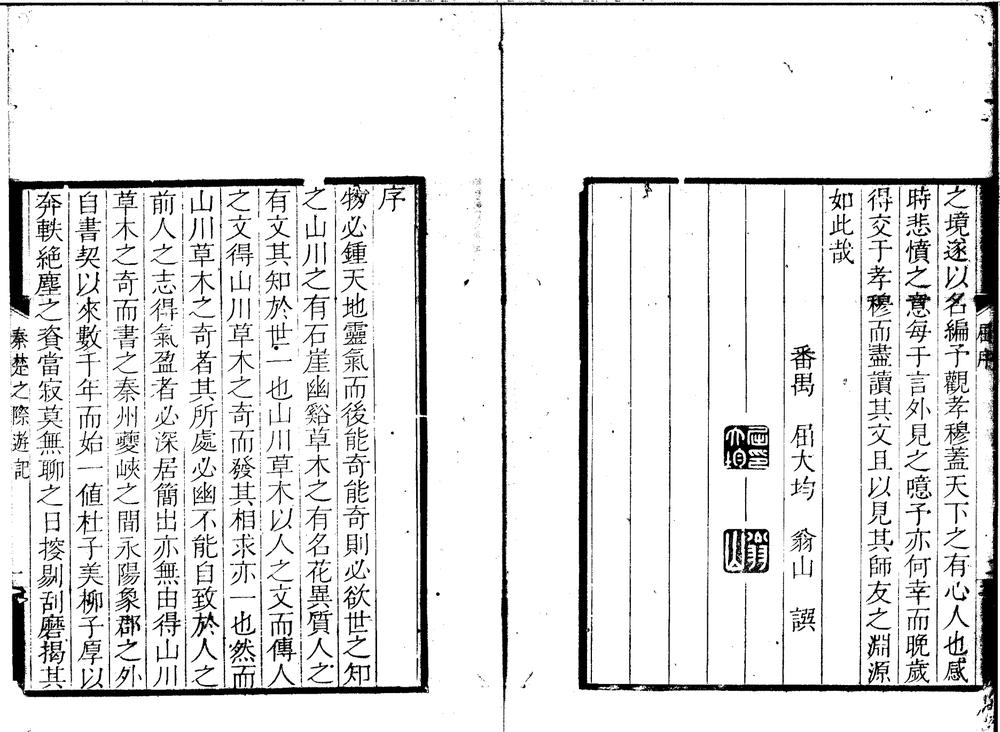 之境遂以名編予觀孝穆蓋天下之有心人也感
時悲憤之意每于言外見之噫予亦何幸而晚歲
得交于孝穆而盡讀其文且以見其師友之淵源
如此哉
番禺 屈大均 翁山 譔
屈印大均
翁山
屈序
序
物必鍾天地靈氣而後能奇能奇則必欲世之知
之山川之有石崖幽谿草木之有名花異質人之
有文其知於世一也山川草木以人之文而傳人
之文得山川草木之奇而發其相求亦一也然而
山川草木之奇者其所處必幽不能自致於人之
前人之志得氣盈者必深居簡出亦無由得山川
草木之奇而書之秦州夔峽之間永陽象郡之外
自書契以來數千年而始一値杜子美柳子厚以
奔軼絕塵之資當寂莫無聊之日按剔刮磨揭其
秦楚之際遊記
一